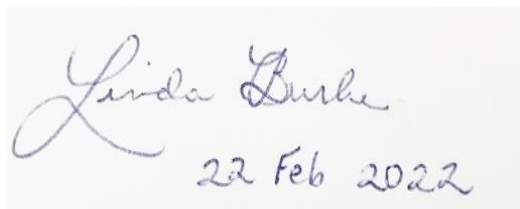 Linda Burke
22 Feb 2022